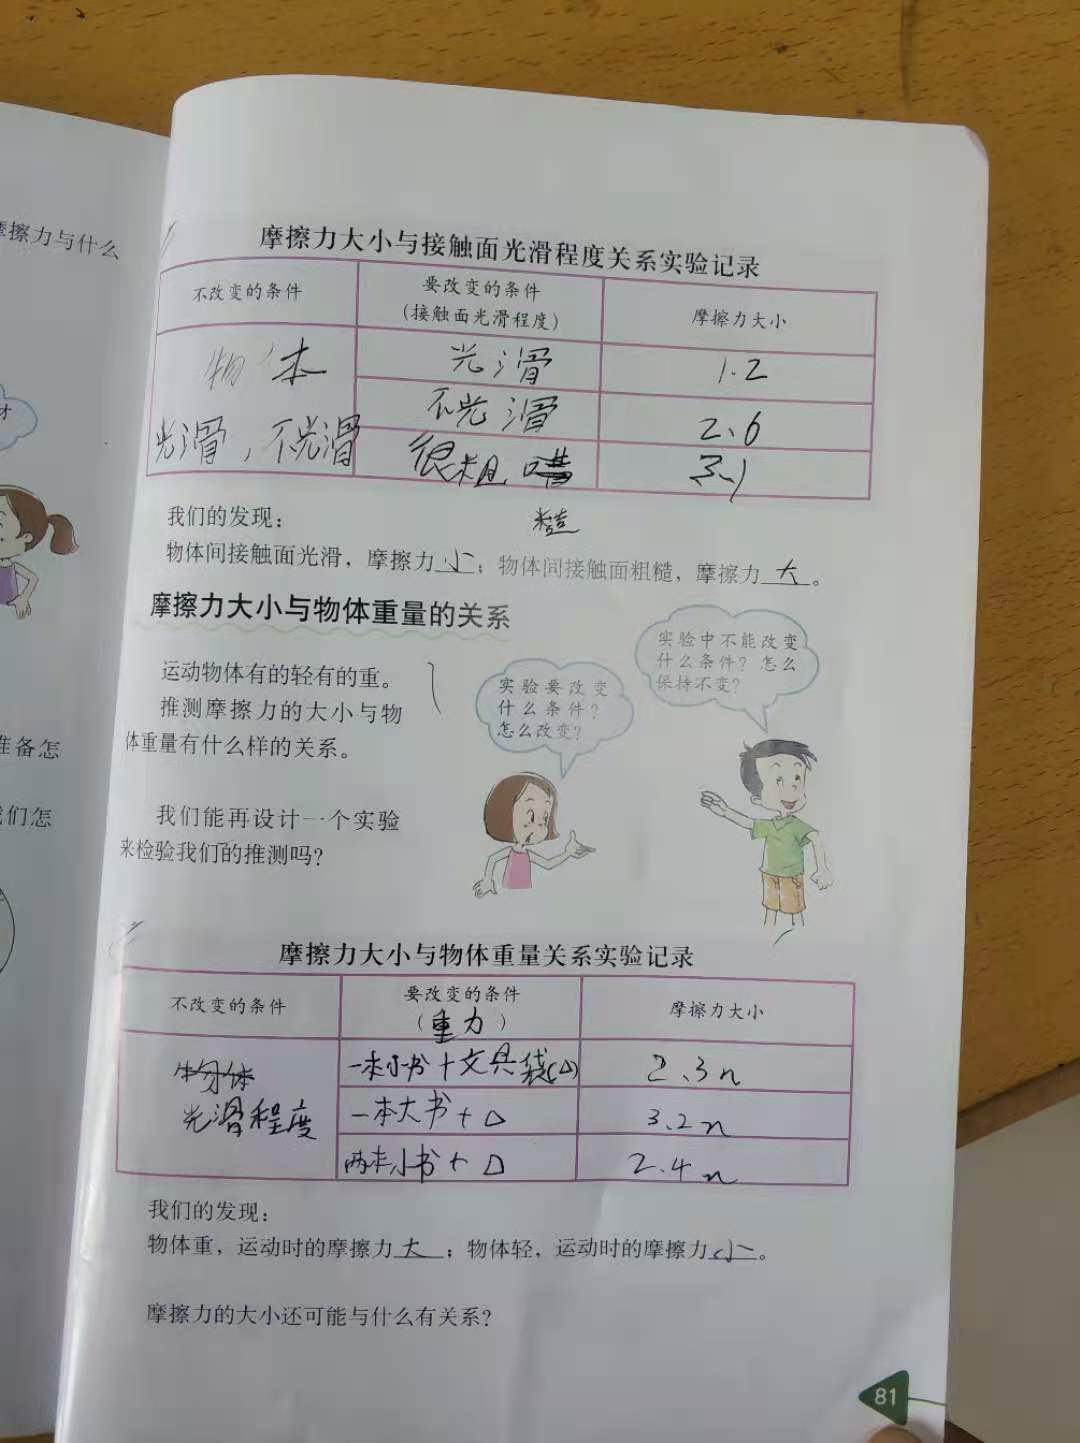 摩擦力与什么
才
准备怎
我们怎
摩擦力大小与接触面光滑程度关系实验记录
不改变的条件 要改变的条件 摩擦力大小
(接触面光滑程度)
物体 光滑 1.2
不光滑 2.6
光滑,不光滑 很粗 3.1
糙
我们的发现:
物体间接触面光滑,摩擦力小;物体间接触面粗糙,摩擦力大。
摩擦力大小与物体重量的关系
运动物体有的轻有的重。
推测摩擦力的大小与物
体重量有什么样的关系。
我们能再设计一个实验
来检验我们的推测吗?
实验要改变
什么条件?
怎么改变?
实验中不能改变
什么条件?怎么
保持不变?
摩擦力大小与物体重量关系实验记录
不改变的条件 要改变的条件 摩擦力大小
(重力)
物体 一本小书+文具袋(△) 2.3n
光滑程度 一本大书+△ 3.2n
两本小书+△ 2.4n
我们的发现:
物体重,运动时的摩擦力大;物体轻,运动时的摩擦力小。
摩擦力的大小还可能与什么有关系?
81